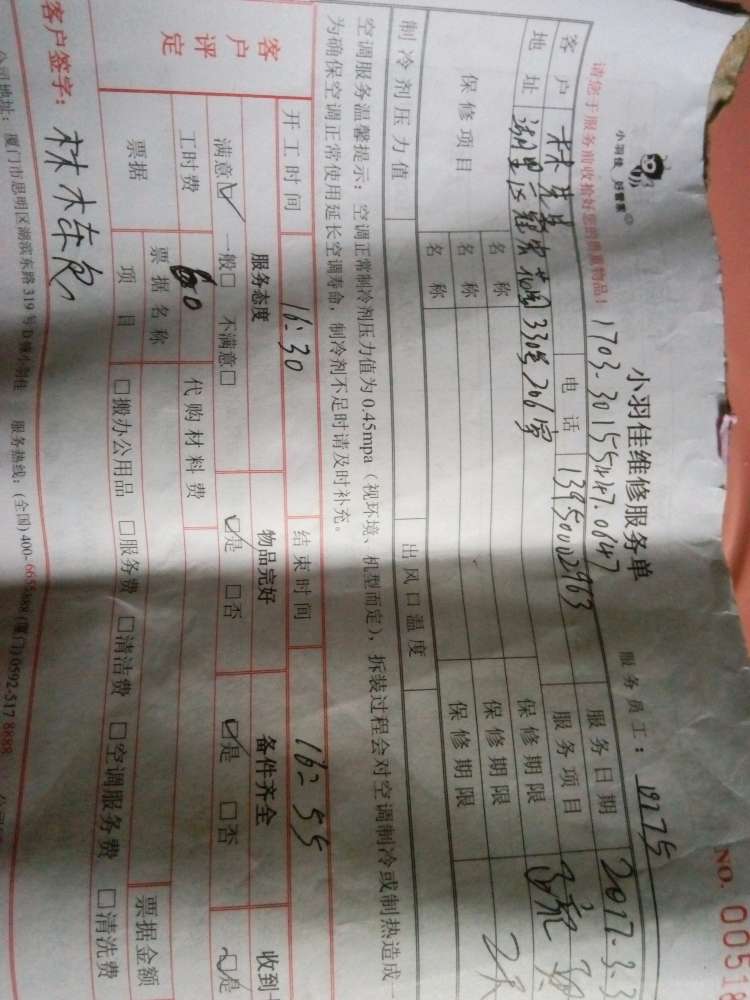 NO. 0051
小羽佳 好管家
小羽佳维修服务单
请您于服务前收拾好您的贵重物品!
1703-30155447-0647
服务员工:
客户 林先生 电话 13950002963 服务日期 2017-3-3
地址 湖里区 花园330号206室 服务项目
保修项目 名称 保修期限
名称 保修期限
名称 保修期限
制冷剂压力值 出风口温度
空调服务温馨提示:空调正常制冷剂压力值为0.45mpa(视环境、机型而定),拆装过程会对空调制冷或制热造成一
为确保空调正常使用延长空调寿命,制冷剂不足时请及时补充。
开工时间 16:30 结束时间 16:55
客户评定 服务态度 物品完好 备件齐全 收到
满意☑ 一般□ 不满意□ ☑是 □否 ☑是 □否 ☑是
工时费 60 代购材料费
票据 票据名称 票据金额
项目 □搬办公用品 □服务费 □清洁费 □空调服务费 □清洗费
客户签字:
公司地址:厦门市思明区湖滨东路319号 服务热线:(全国)400- (厦门)0592-517 8888